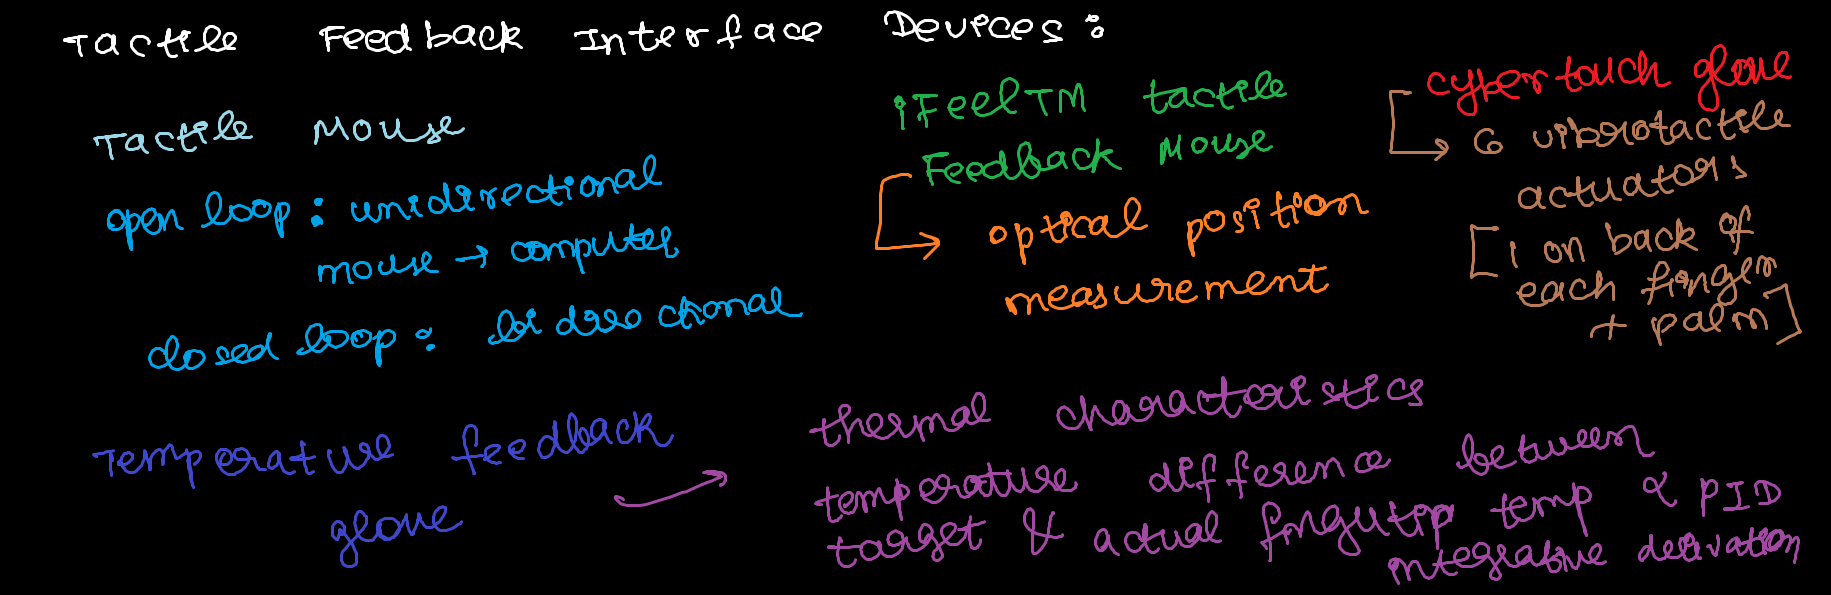 Tactile Feedback Interface Devices:
Tactile Mouse
open loop: unidirectional
mouse → computer
closed loop: bidirectional
iFeelTM tactile
Feedback Mouse
→ optical position
measurement
cybertouch glove
→ 6 vibrotactile
actuators
[1 on back of
each finger
+ palm]
Temperature feedback
glove
→ thermal characteristics
temperature difference between
target & actual fingertip temp α PID
integrative derivation